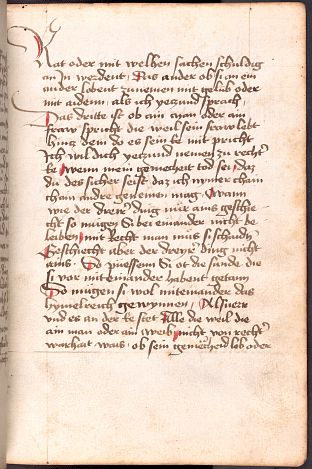 Rat oder mit welhen sachen schuldig
an In werdent Das ander ob si in ein
ander lobent zunemen mit gelüb oder
mit aidenn als ich yeczund sprach
Das dritte ist ob ain man oder am
fraw spricht die weil sein fraw lebt
hincz dem do es sein ke mit pricht
Ich wil dich yeczund nemen zu recht
ke wenn mein gemecheit tod sei daz
du des sicher seist daz ich nymer chain
chain andre genemen mag Wann
wie der dreyr ding nür ains geschie
cht so mügen si bei einander nicht be
leiben mit Recht man mus si schaiden
Geschiecht aber der dreyr ding nicht
ains So püessenn Si ot die sünde die
si vor mit einander habent getann
So mügen si wol mit einander das
hymelreich gewynnen Als uerr
und es an der ke stet Alle die weil die
ain man oder ain weib nicht von rechter
warhait wais ob sein gemecheid lob oder